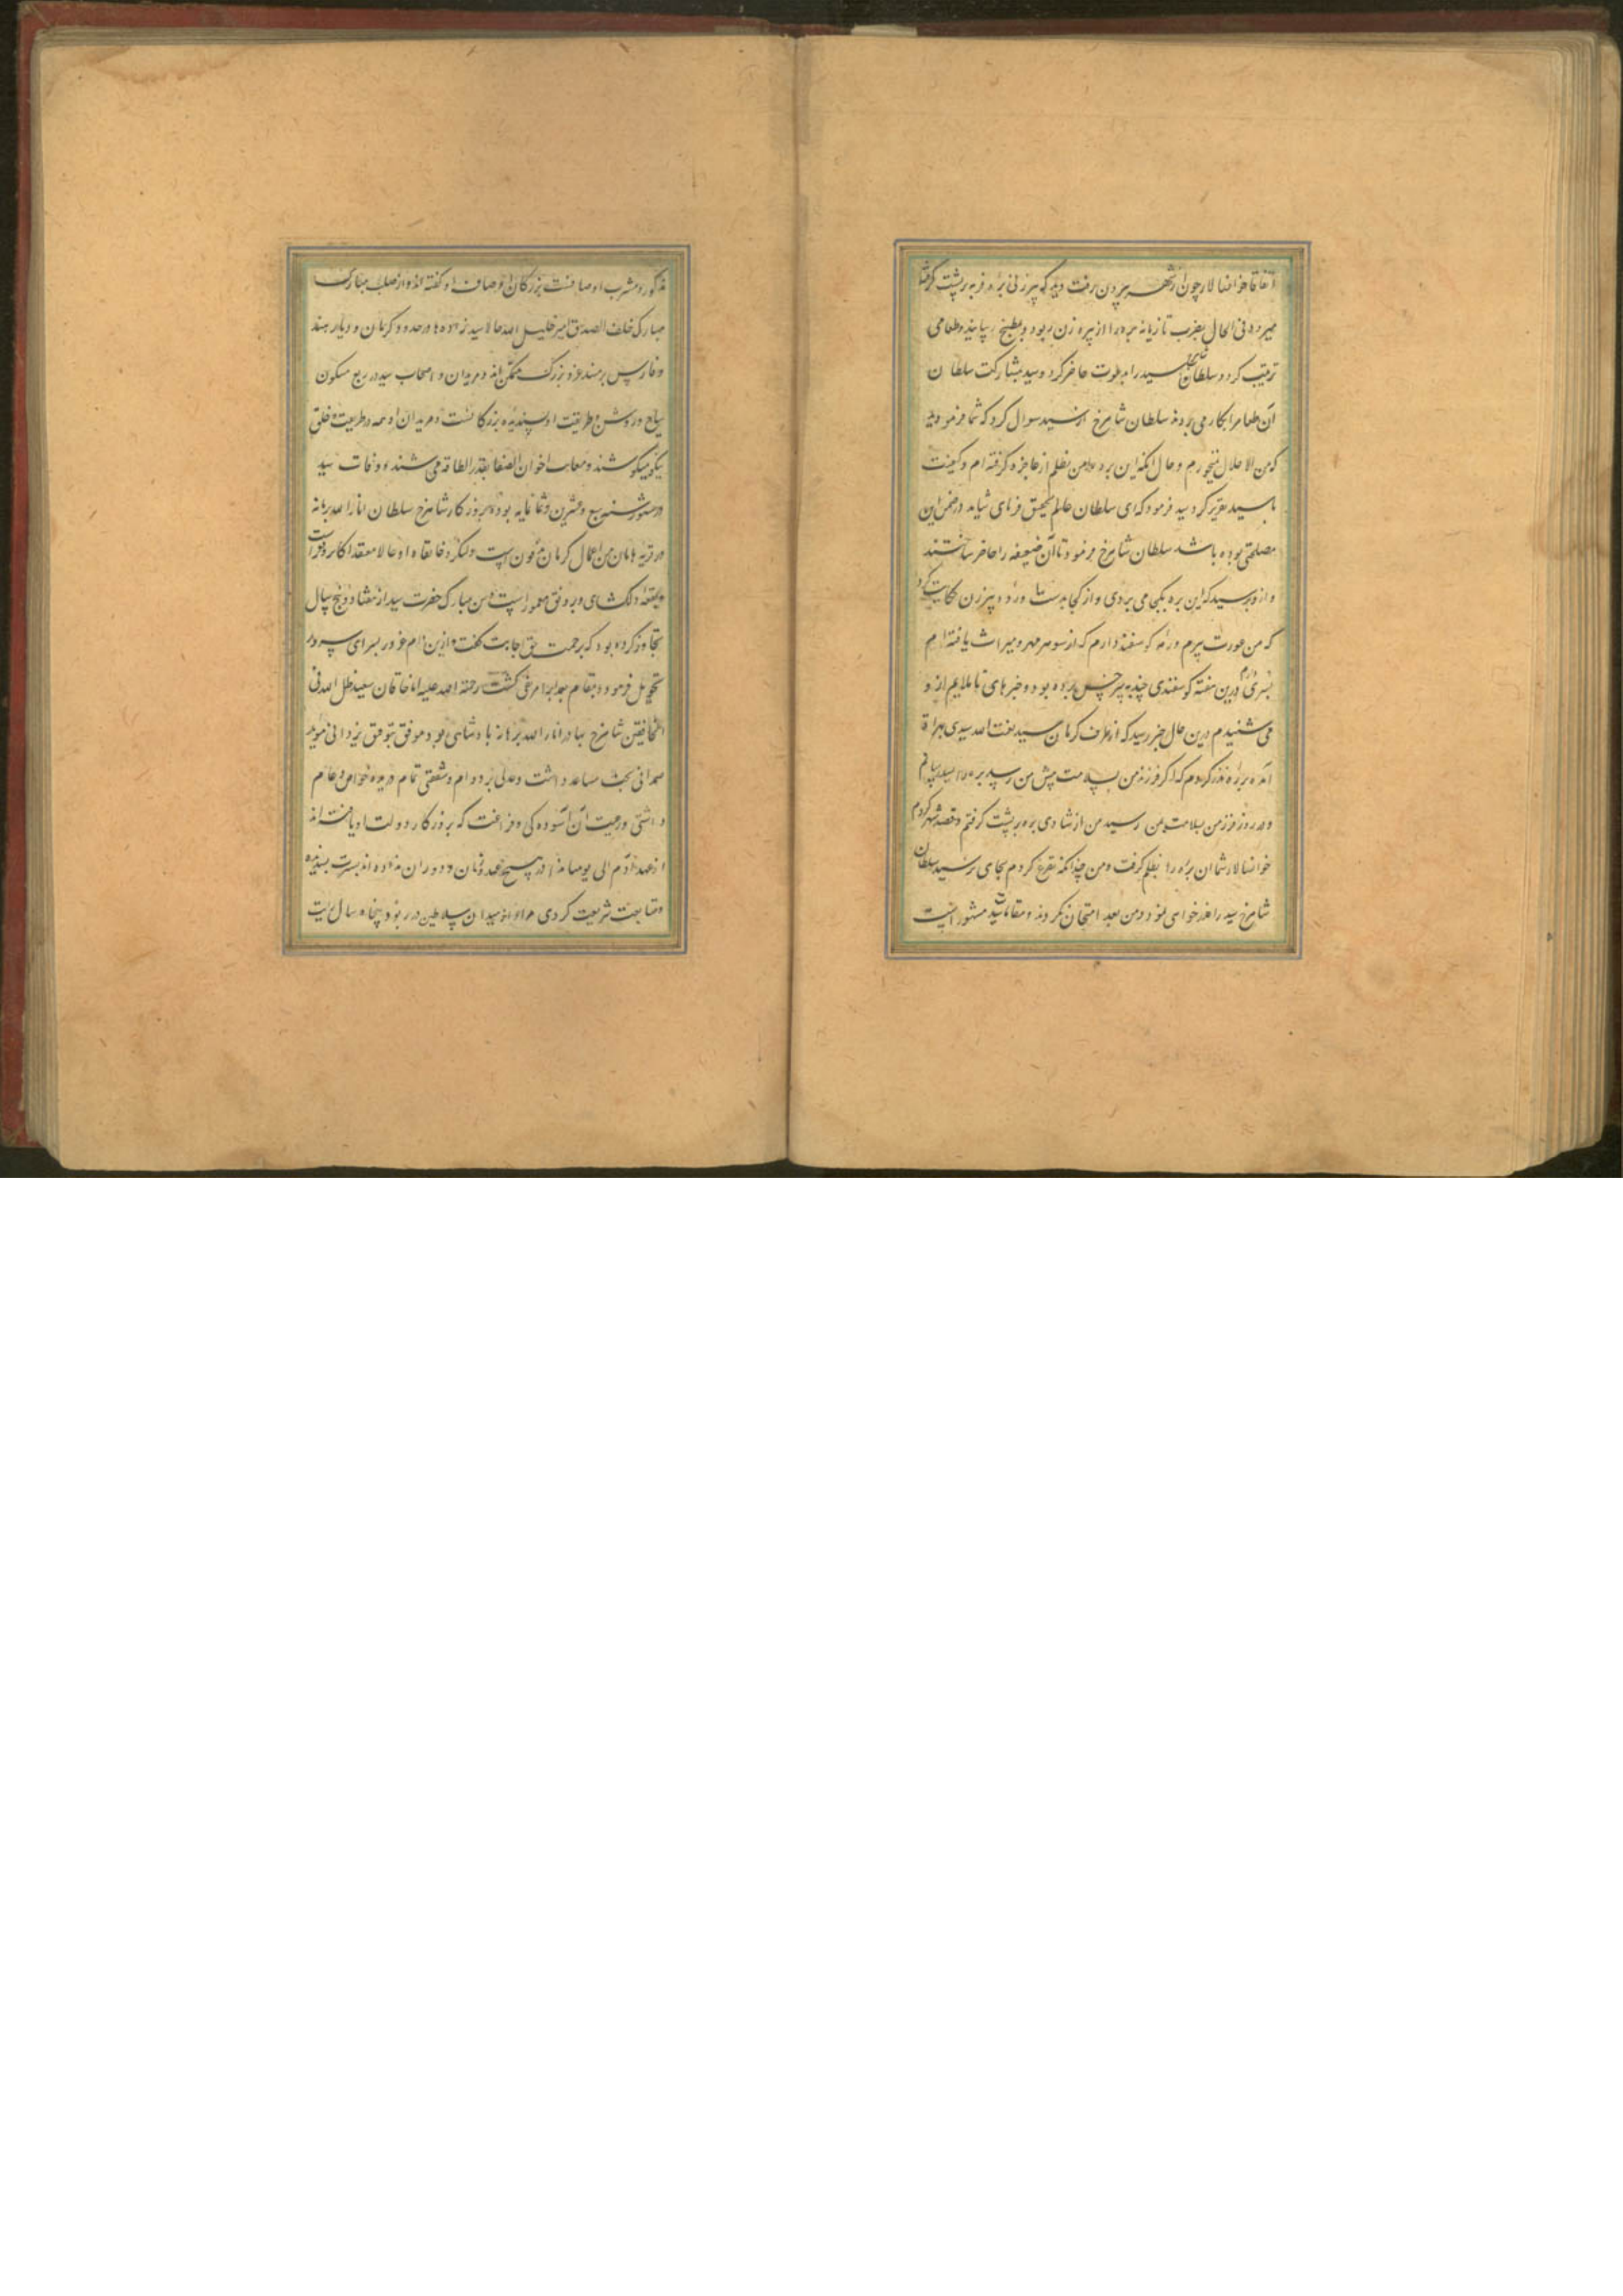 اتفاقا خوانسالار چون از شهر بیرون رفت دید که پیرزنی بره فربه بر پشت گرفته
میرود فی الحال بضرب تازیانه بره را از پیره زن بربود و بمطبخ رسانید و طعامی
ترتیب کرد و سلطان شاهرخ سید را بدعوت حاضر کرد و سید بمشارکت سلطان
آن طعام را بکار می بردند سلطان شاهرخ از سید سوال کرد که شما فرمودید
که من الا حلال نمیخورم و حال آنکه این بره را من بظلم از عاجزه گرفته ام و کیفیت
با سید تقریر کرد سید فرمود که ای سلطان عالم تحقیق فرمای شاید در ضمن این
مصلحتی بوده باشد سلطان شاهرخ فرمود تا آن ضعیفه را حاضر ساختند
و ازو پرسید که این بره بکجا می بردی و از کجا بدست آورده پیرزن حکایت کرد
که من عورت پیرم و رمه گوسفند دارم که از شوهر مهر و میراث یافته ام
پسری دارم درین هفته گوسفندی چند به سرخس برده بود و خبرهای ناملایم ازو
می شنیدم درین حال خبر رسید که از طرف کرمان سید نعمت الله سیدی بهراة
آمده بره نذر کردم که اگر فرزند من بسلامت پیش من رسد بره را بسید رسانم
و در روز فرزند من بسلامت بمن رسید من از شادی بره بر پشت گرفتم و قصد شهر کردم
خوانسالار شما آن بره را بظلم گرفت و من چندانکه تضرع کردم بجای نرسید سلطان
شاهرخ سید را عذر خواهی نمود و من بعد امتحان نکردند و مقامات سید مشهور است
مذکور و مشرب او صافیست بزرگان اوصاف او گفته اند و از صلب مبارک
مبارک خلف الصدق امیر خلیل الله حالا سید زاده ها در حدود کرمان و دیار هند
و فارس بر مسند عز و بزرگی ممکن اند و مریدان و اصحاب سید در ربع مسکون
سیاح و روش و طریقت او پسندیده بزرگانست و مریدان او همه در طریقت و خلق
نیکو میکوشند و معایب اخوان الصفا بقدر الطاقه می پوشند و وفات سید
در شهور سنه سبع و عشرین و ثمانمایه بوده بروزگار شاهرخ سلطان انار الله برهانه
در قریه ماهان من اعمال کرمان مدفون است و لنگر و خانقاه او حالا معتقد اکابر و فقراست
و بقعه دلگشای و بر رونق معمور است و سن مبارک حضرت سید از هفتاد و پنج سال
تجاوز کرده بود که برحمت حق اجابت گفت و ازین دام غرور بسرای سرور
تحویل فرمود و بمقام ابد مرغی گشت رحمة الله علیه اما خاقان سعید ظل الله فی
الخافقین شاهرخ بهادر انار الله برهانه پادشاهی بود موفق بتوفیق یزدانی موید
صمدانی بخت مساعد داشت و عدلی بر دوام و شفقتی تمام درباره خواص و عام
داشتی و رعیت آن آسوده گی و فراغت که بروزگار دولت او یافته اند
از عهد آدم الی یومنا هذا در هیچ عهد و زمان و دوران نداده اند بسیرت پسندیده
و متابعت شریعت کردی مراد از میدان سلاطین در ربود پنجاه سال برایت